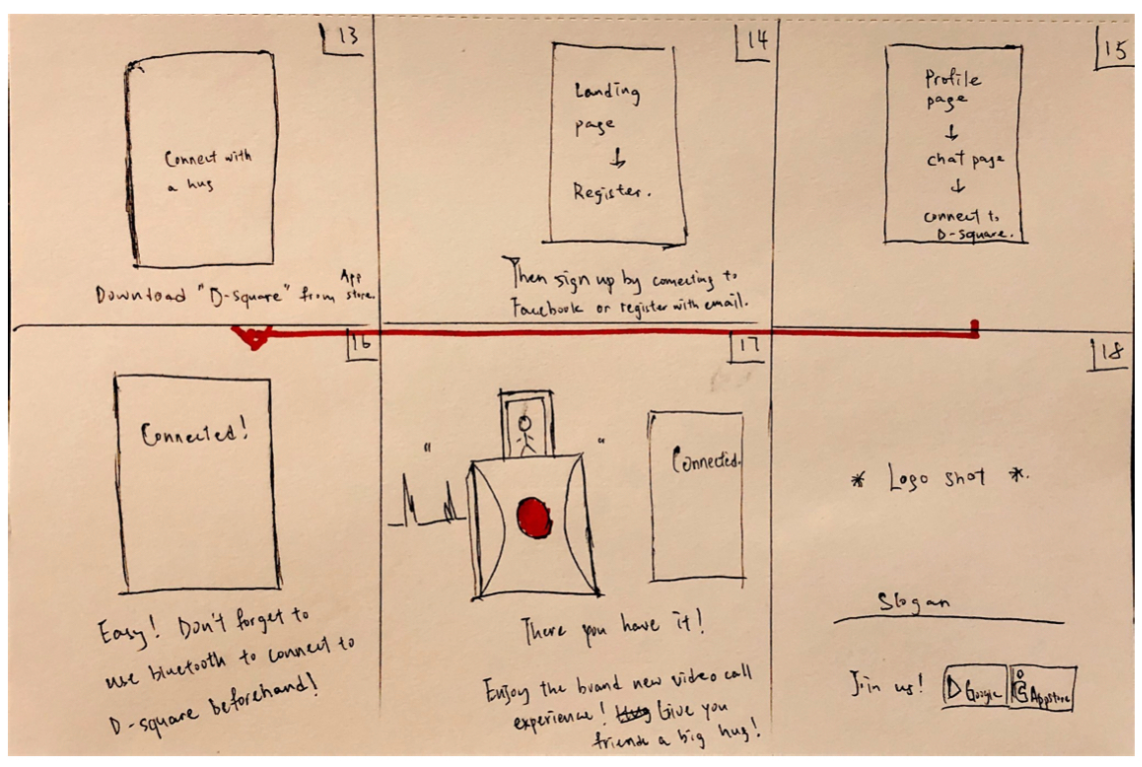 13
Connect with
a hug
Download "D-square" from App store.
14
Landing
page
Register.
Then sign up by connecting to
Facebook or register with email.
15
Profile
page
chat page
connect to
D-square.
16
Connected!
Easy! Don't forget to
use bluetooth to connect to
D-square beforehand!
17
" "
Connected.
There you have it!
Enjoy the brand new video call
experience! Hug Give you
friends a big hug!
18
* Logo shot *.
Slogan
Join us! Google Appstore